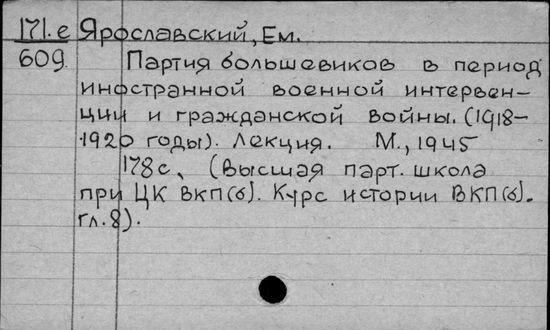 171.е Ярославский, Ем.
609. Партия большевиков в период
иностранной военной интервен-
ции и гражданской войны. (1918-
-1920 годы). Лекция. М., 1945
178 с. (Высшая парт. школа
при ЦК ВКП(б). Курс истории ВКП(б).
гл. 8).